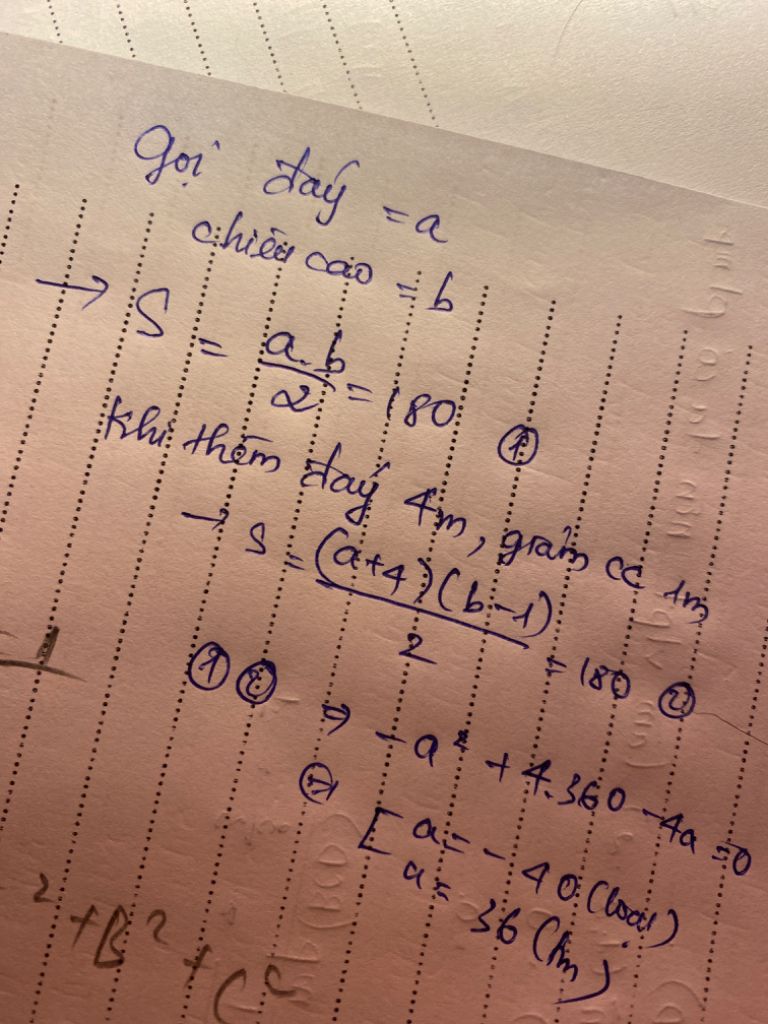 Gọi đáy = a
chiều cao = b
→ S = a.b/2 = 180 ①
Khi thêm đáy 4m, giảm cc 1m
→ S = (a+4)(b-1)/2 = 180 ②
① ② ⇒ -a² + 4.360 - 4a = 0
⇔ [ a = -40 (loại)
a = 36 (tm)
² + B² + C²